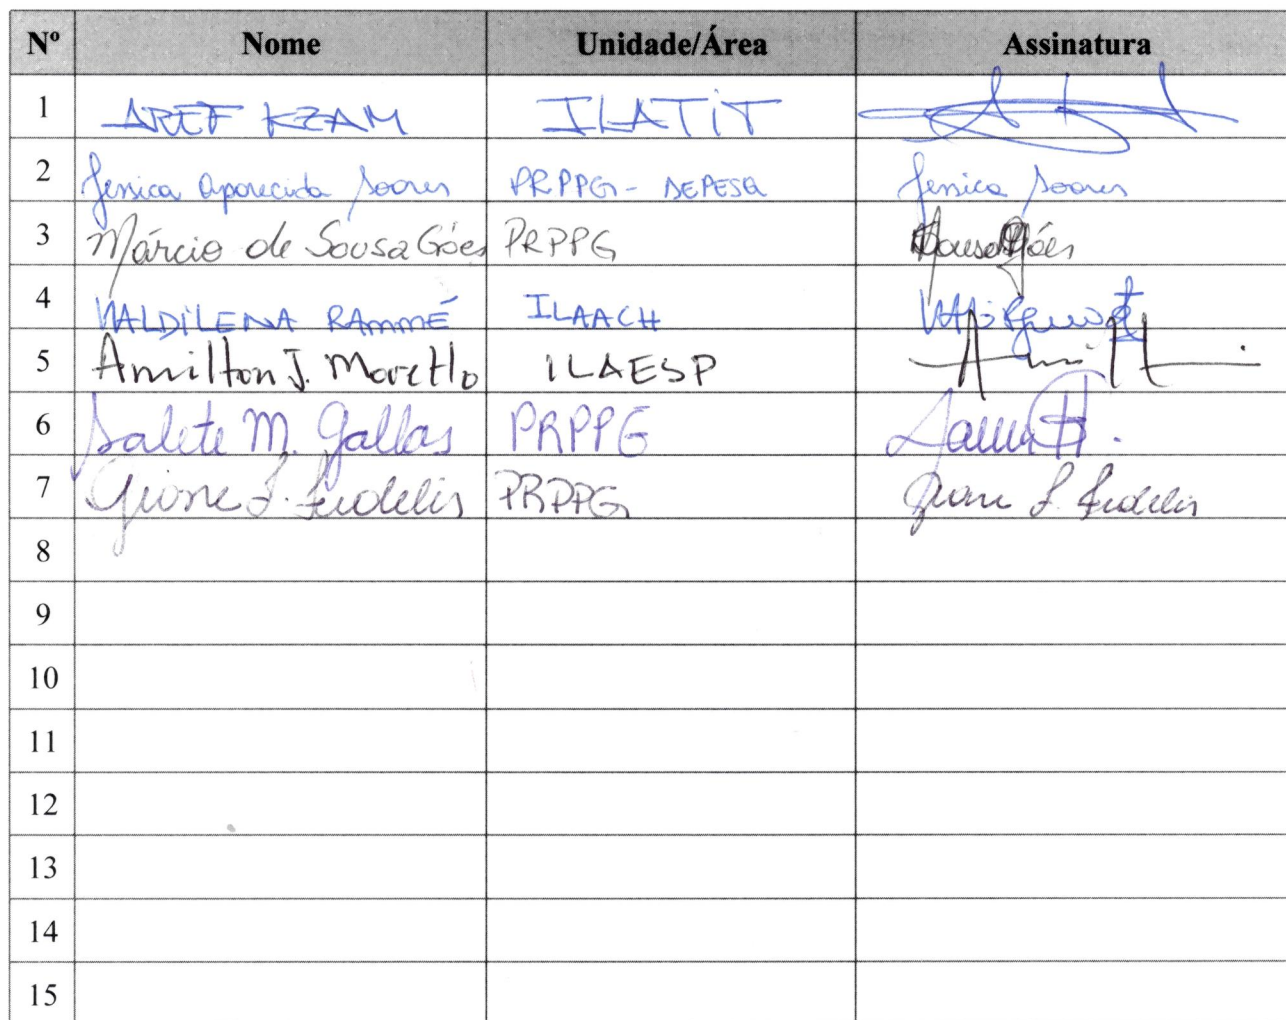 Nº Nome Unidade/Área Assinatura
1 AREF KZAM ILATIT
2 Jessica Aparecida Soares PRPPG - DEPESQ Jessica Soares
3 Márcio de Sousa Góes PRPPG Sousa Góes
4 VALDILENA RAMMÉ ILAACH
5 Amilton J. Moretto ILAESP
6 Salete M. Gallas PRPPG
7 Gione S. Fidelis PRPPG Gione S. Fidelis
8
9
10
11
12
13
14
15